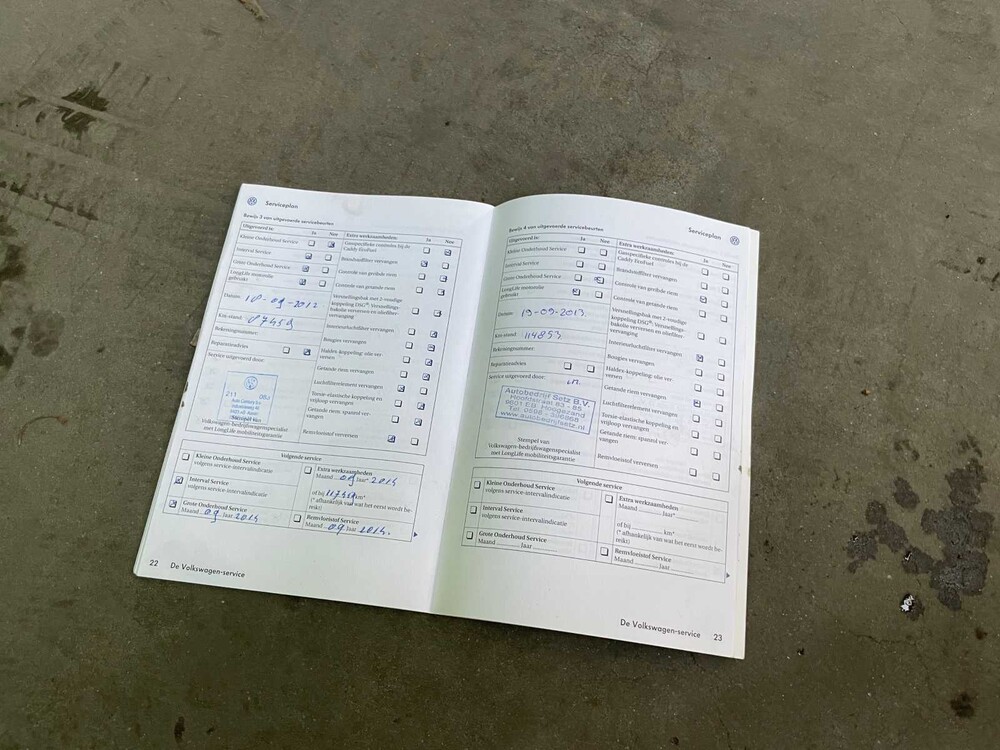 Serviceplan
Bewijs 3 van uitgevoerde servicebeurten
Uitgevoerd is: Ja Nee
Kleine Onderhoud Service
Interval Service
Grote Onderhoud Service
LongLife motorolie
gebruikt
Datum:
Km-stand: 87459
Rekeningnummer:
Reparatieadvies
Service uitgevoerd door:
211
Stempel van
Volkswagen-bedrijfswagenspecialist
met LongLife mobiliteitsgarantie
Extra werkzaamheden: Ja Nee
Gasspecifieke controles bij de
Caddy EcoFuel
Brandstoffilter vervangen
Controle van geribde riem
Controle van getande riem
Versnellingsbak met 2-voudige
koppeling DSG®: Versnellings-
bakolie verversen en oliefilter-
vervanging
Interieurluchtfilter vervangen
Bougies vervangen
Haldex-koppeling: olie ver-
versen
Getande riem vervangen
Luchtfilterelement vervangen
Torsie-elastische koppeling en
vrijloop vervangen
Getande riem: spanrol ver-
vangen
Remvloeistof verversen
Volgende service
Kleine Onderhoud Service
volgens service-intervalindicatie
Interval Service
volgens service-intervalindicatie
Grote Onderhoud Service
Maand 09 Jaar 2014
Extra werkzaamheden
Maand 09 Jaar 2014
of bij 117459 km*
(* afhankelijk van wat het eerst wordt be-
reikt)
Remvloeistof Service
Maand 09 Jaar 2014.
22 De Volkswagen-service
Serviceplan
Bewijs 4 van uitgevoerde servicebeurten
Uitgevoerd is: Ja Nee
Kleine Onderhoud Service
Interval Service
Grote Onderhoud Service
LongLife motorolie
gebruikt
Datum: 19-09-2013
Km-stand: 114853
Rekeningnummer:
Reparatieadvies
Service uitgevoerd door:
Autobedrijf Setz B.V.
Hoofdstraat 83 - 85
9601 EB Hoogezand
www.autobedrijfsetz.nl
Stempel van
Volkswagen-bedrijfswagenspecialist
met LongLife mobiliteitsgarantie
Extra werkzaamheden: Ja Nee
Gasspecifieke controles bij de
Caddy EcoFuel
Brandstoffilter vervangen
Controle van geribde riem
Controle van getande riem
Versnellingsbak met 2-voudige
koppeling DSG®: Versnellings-
bakolie verversen en oliefilter-
vervanging
Interieurluchtfilter vervangen
Bougies vervangen
Haldex-koppeling: olie ver-
versen
Getande riem vervangen
Luchtfilterelement vervangen
Torsie-elastische koppeling en
vrijloop vervangen
Getande riem: spanrol ver-
vangen
Remvloeistof verversen
Volgende service
Kleine Onderhoud Service
volgens service-intervalindicatie
Interval Service
volgens service-intervalindicatie
Grote Onderhoud Service
Maand Jaar
Extra werkzaamheden
Maand Jaar*
of bij km*
(* afhankelijk van wat het eerst wordt be-
reikt)
Remvloeistof Service
Maand Jaar
De Volkswagen-service 23